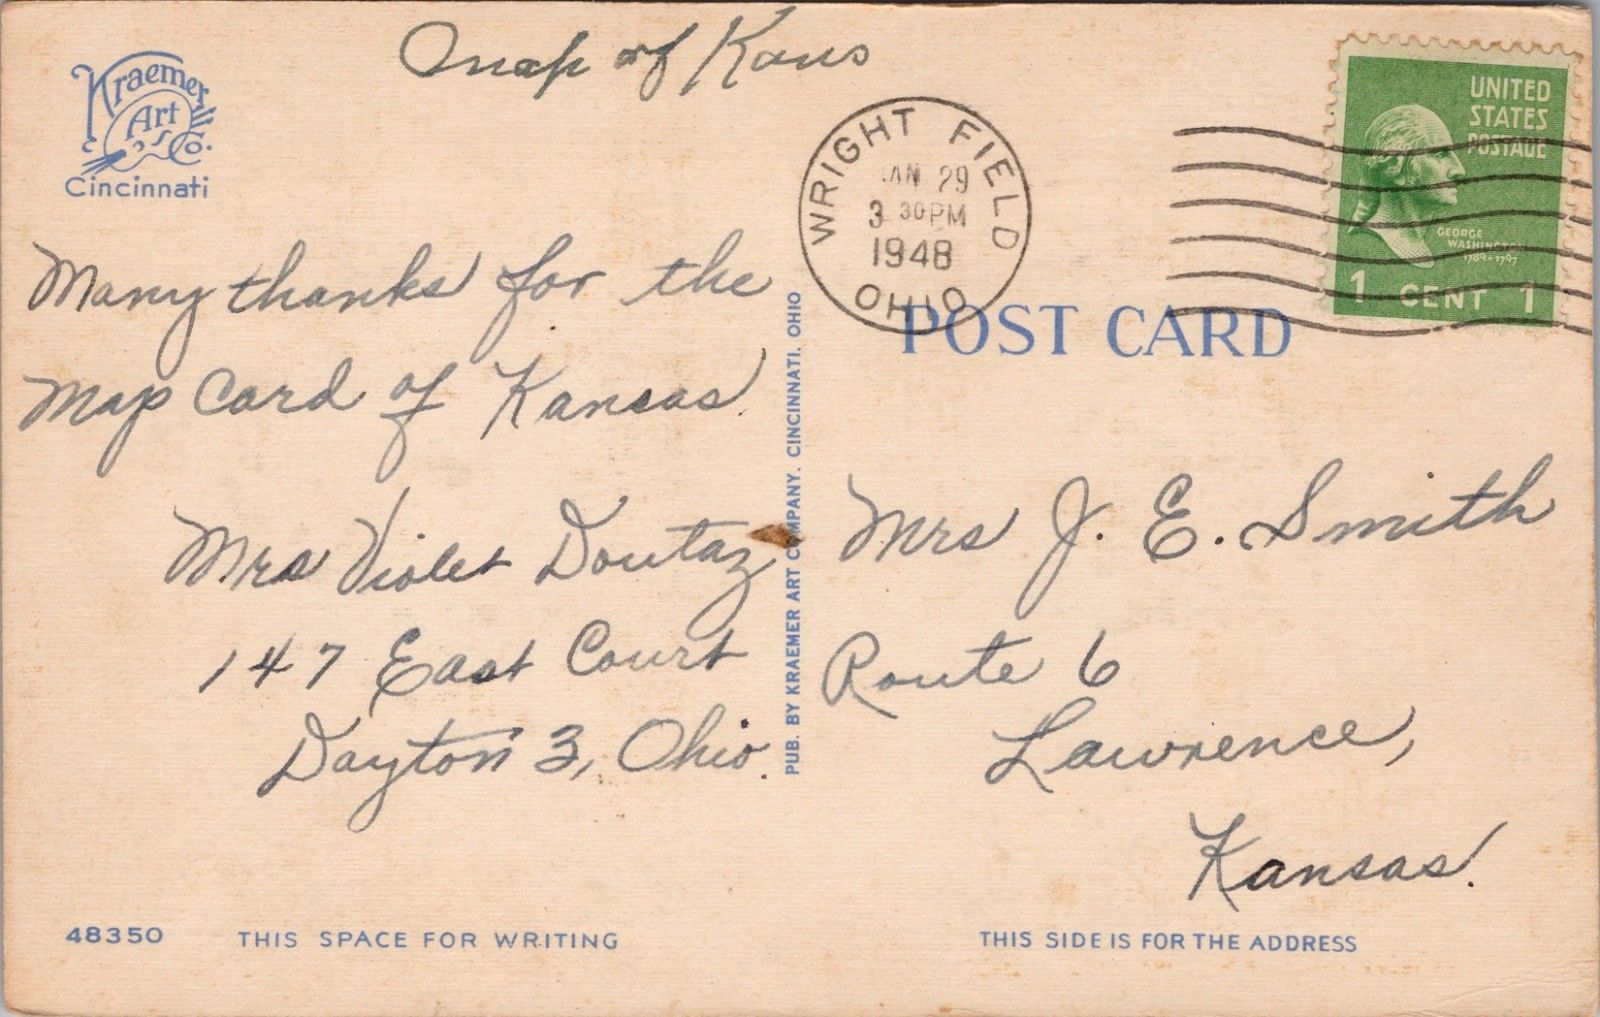 Map of Kans
Kraemer
Art
Co.
Cincinnati
WRIGHT FIELD
JAN 29
3 30 PM
1948
OHIO
UNITED
STATES
POSTAGE
GEORGE
WASHINGTON
1789-1797
1 CENT 1
POST CARD
Many thanks for the
Map Card of Kansas.
Mrs Violet Doutaz
147 East Court
Dayton 3, Ohio.
PUB. BY KRAEMER ART COMPANY, CINCINNATI, OHIO
Mrs J. E. Smith
Route 6
Lawrence,
Kansas.
48350
THIS SPACE FOR WRITING
THIS SIDE IS FOR THE ADDRESS